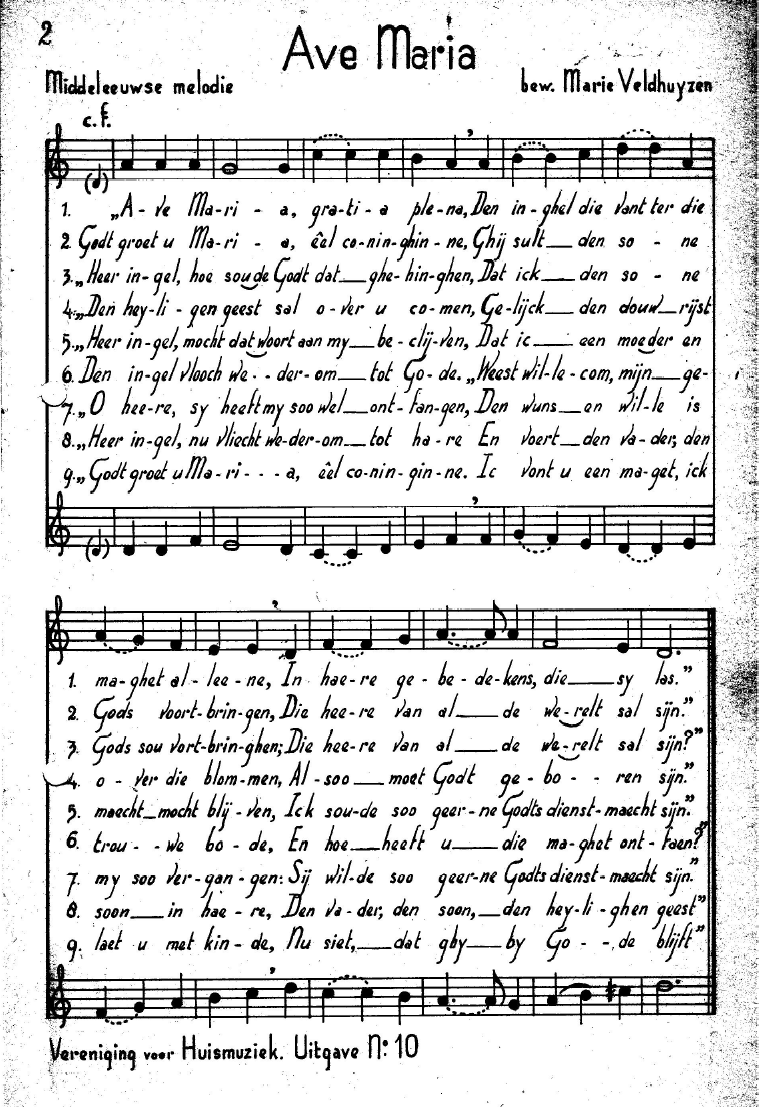 2
Ave Maria
Middeleeuwse melodie
bew. Marie Veldhuyzen
c.f.
1. „A - ve Ma-ri - a, gra-ti-a ple-na, Den in-ghel die vant ter die
2. Godt groet u Ma-ri - a, êêl co-nin-ghin-ne, Ghij sult__ den so - ne
3. „Heer in-gel, hoe soude Godt dat__ ghe-hin-ghen, Dat ick__ den so - ne
4. „Den hey-li-gen geest sal o-ver u co-men, Ge-lijck__ den douw__rijst
5. „Heer in-gel, mocht dat woort aan my__ be-clij-ven, Dat ic__ een moeder en
6. Den in-gel vlooch we - - der-om__ tot Go-de. „Weest wil-le-com, mijn__ ge-
7. „O hee-re, sy heeft my soo wel__ ont-fan-gen, Den wuns__en wil-le is
8. „Heer in-gel, nu vliecht we-der-om__ tot ha-re En voert__ den va-der, den
9. „Godt groet u Ma-ri - - - a, êêl co-nin-gin-ne. Ic vont u een ma-get, ick
1. ma-ghet al-lee-ne, In hae-re ge-be-de-kens, die__ sy las.”
2. Gods voort-brin-gen, Die hee-re van al__ de we-relt sal sijn.”
3. Gods sou vort-brin-ghen; Die hee-re van al__ de we-relt sal sijn?”
4. o-ver die blom-men, Al-soo__ moet Godt ge-bo - - ren sijn.”
5. maecht__mocht blij-ven, Ick sou-de soo geer-ne Godts dienst-maecht sijn.”
6. trou - - we bo-de, En hoe__heeft u__ die ma-ghet ont-faen?”
7. my soo ver-gan-gen: Sij wil-de soo geer-ne Godts dienst-maecht sijn.”
8. soon__ in hae-re, Den va-der, den soon,__den hey-li-ghen geest”
9. laet u met kin-de, Nu siet,__dat ghy__by Go - - de blijft”
Vereniging voor Huismuziek. Uitgave No: 10